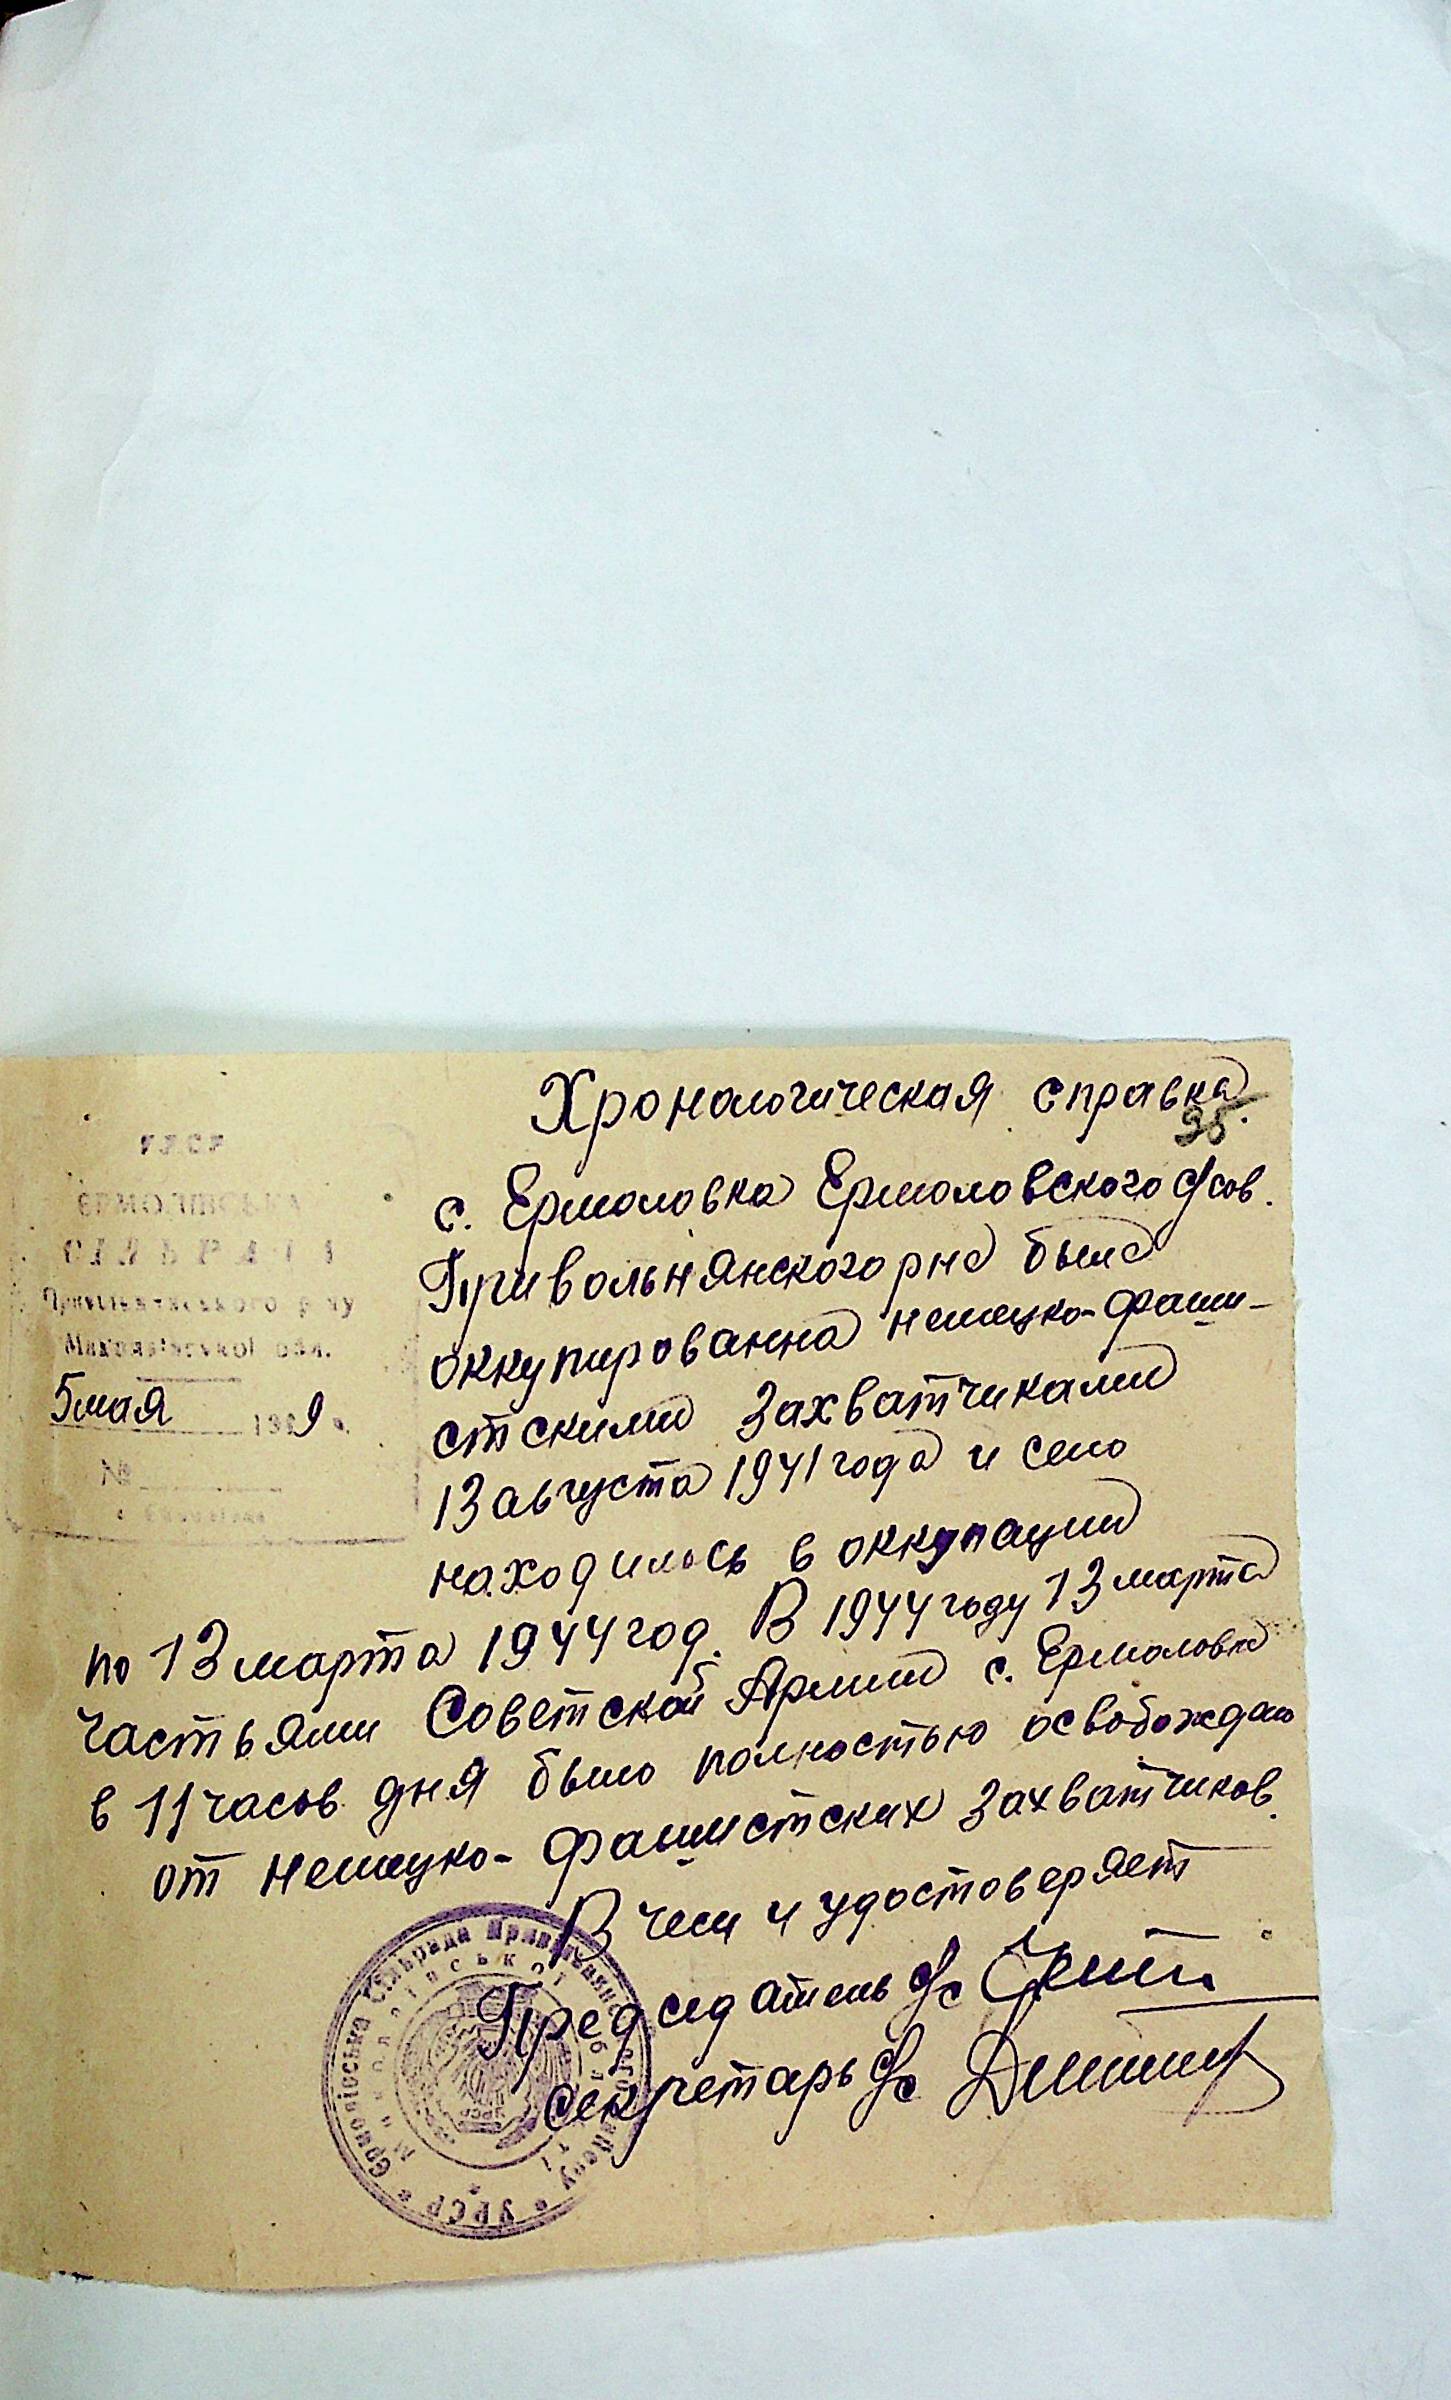 Хронологическая справка
95.
с. Ермоловка Ермоловского с/сов.
Привольнянского рна была
оккупированна немецко-фаши-
стскими захватчиками
13 августа 1941 года и село
находилось в оккупации
по 13 марта 1944 год. В 1944 году 13 марта
частьями Советской Армии с. Ермоловка
в 11 часов дня было полностью освобождено
от немецко-фашистских захватчиков.
В чем и удостоверяет
Председатель с/с
секретарь с/с
УРСР
ЄРМОЛІВСЬКА
СІЛЬРАДА
Привільнянського р-ну
Миколаївської обл.
5 мая 9 р.
№
Єрмолівська Сільрада Привільнянського району * УРСР *
Миколаївської області
УРСР